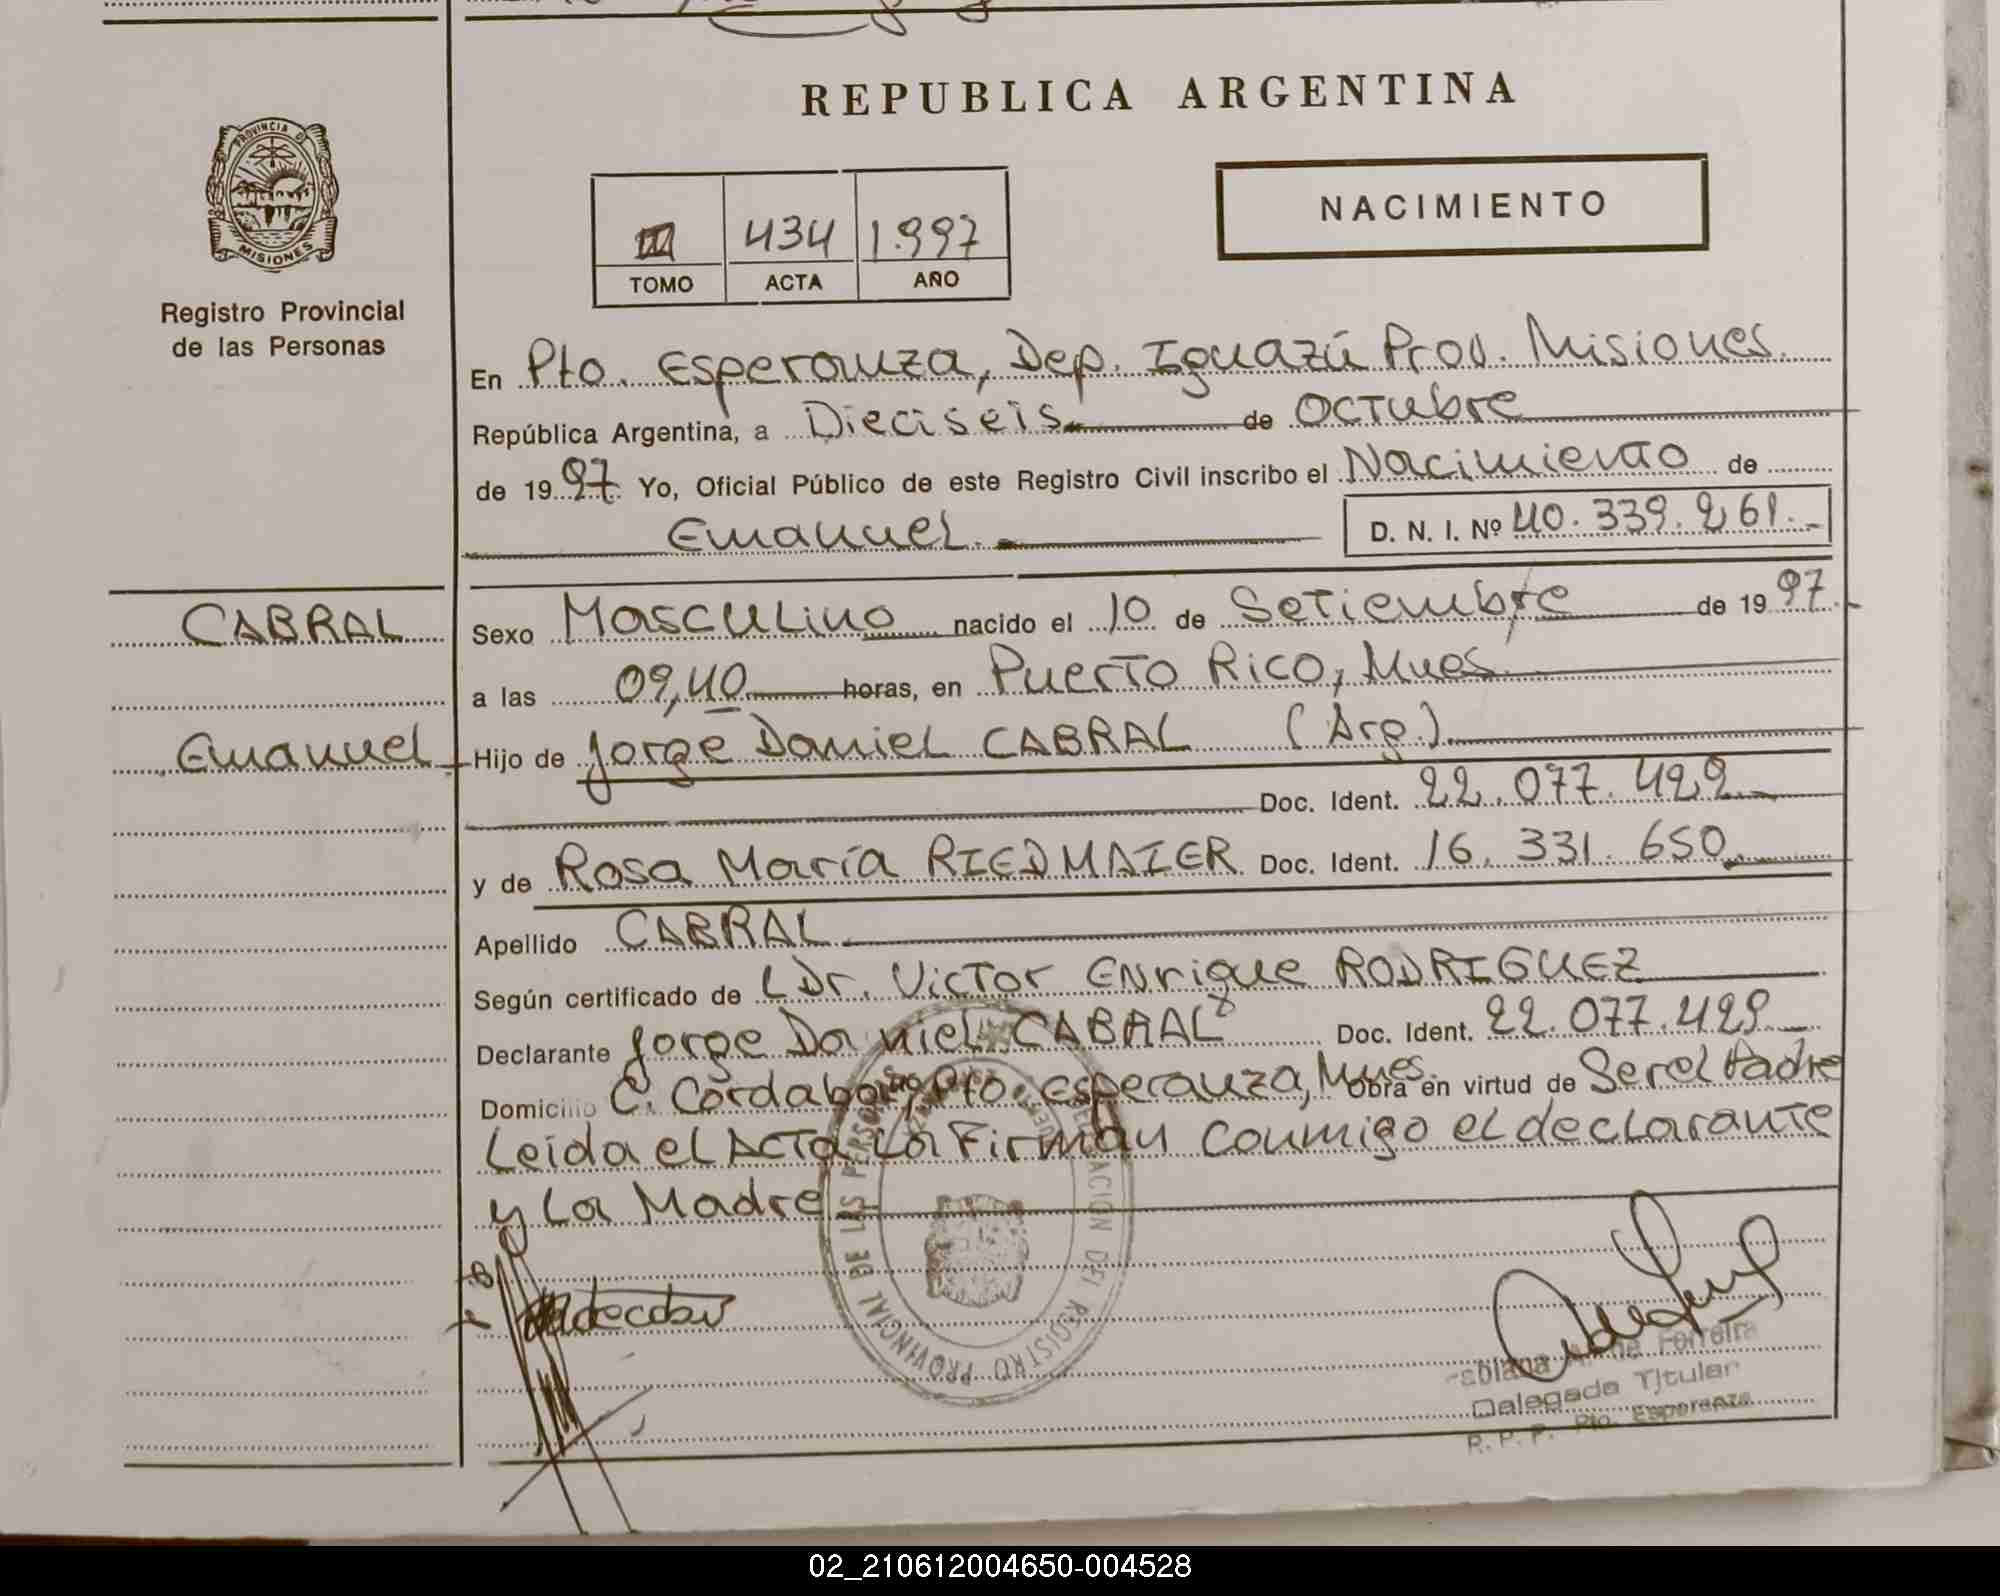 REPUBLICA ARGENTINA
PROVINCIA D
MISIONES
Registro Provincial
de las Personas
NACIMIENTO
III 434 1.997
TOMO ACTA AÑO
En Pto. Esperanza, Dep. Iguazú Prov. Misiones
República Argentina, a Dieciseis de Octubre
de 1997 Yo, Oficial Público de este Registro Civil inscribo el Nacimiento de
Emanuel. D. N. I. Nº 40.339.261.-
CABRAL
Emanuel
Sexo Masculino nacido el 10 de Setiembre de 1997
a las 09,40 horas, en Puerto Rico, Mnes
Hijo de Jorge Daniel CABRAL (Arg.)
Doc. Ident. 22.077.422
y de Rosa María RIEDMAIER Doc. Ident. 16.331.650
Apellido CABRAL
Según certificado de Dr. Victor Enrique RODRIGUEZ
Declarante Jorge Daniel CABRAL Doc. Ident. 22.077.429
Domicilio C. Cordaba, Pto. Esperanza, Mnes. Obra en virtud de Ser el Padre
Leida el ACTA La Firman conmigo el declarante
y La Madre
PROVINCIAL DE LAS PERSO
ACION DEL REGISTRO
Ferreira
Delegada Titular
R. P. P. Pto. Esperanza
02_210612004650-004528